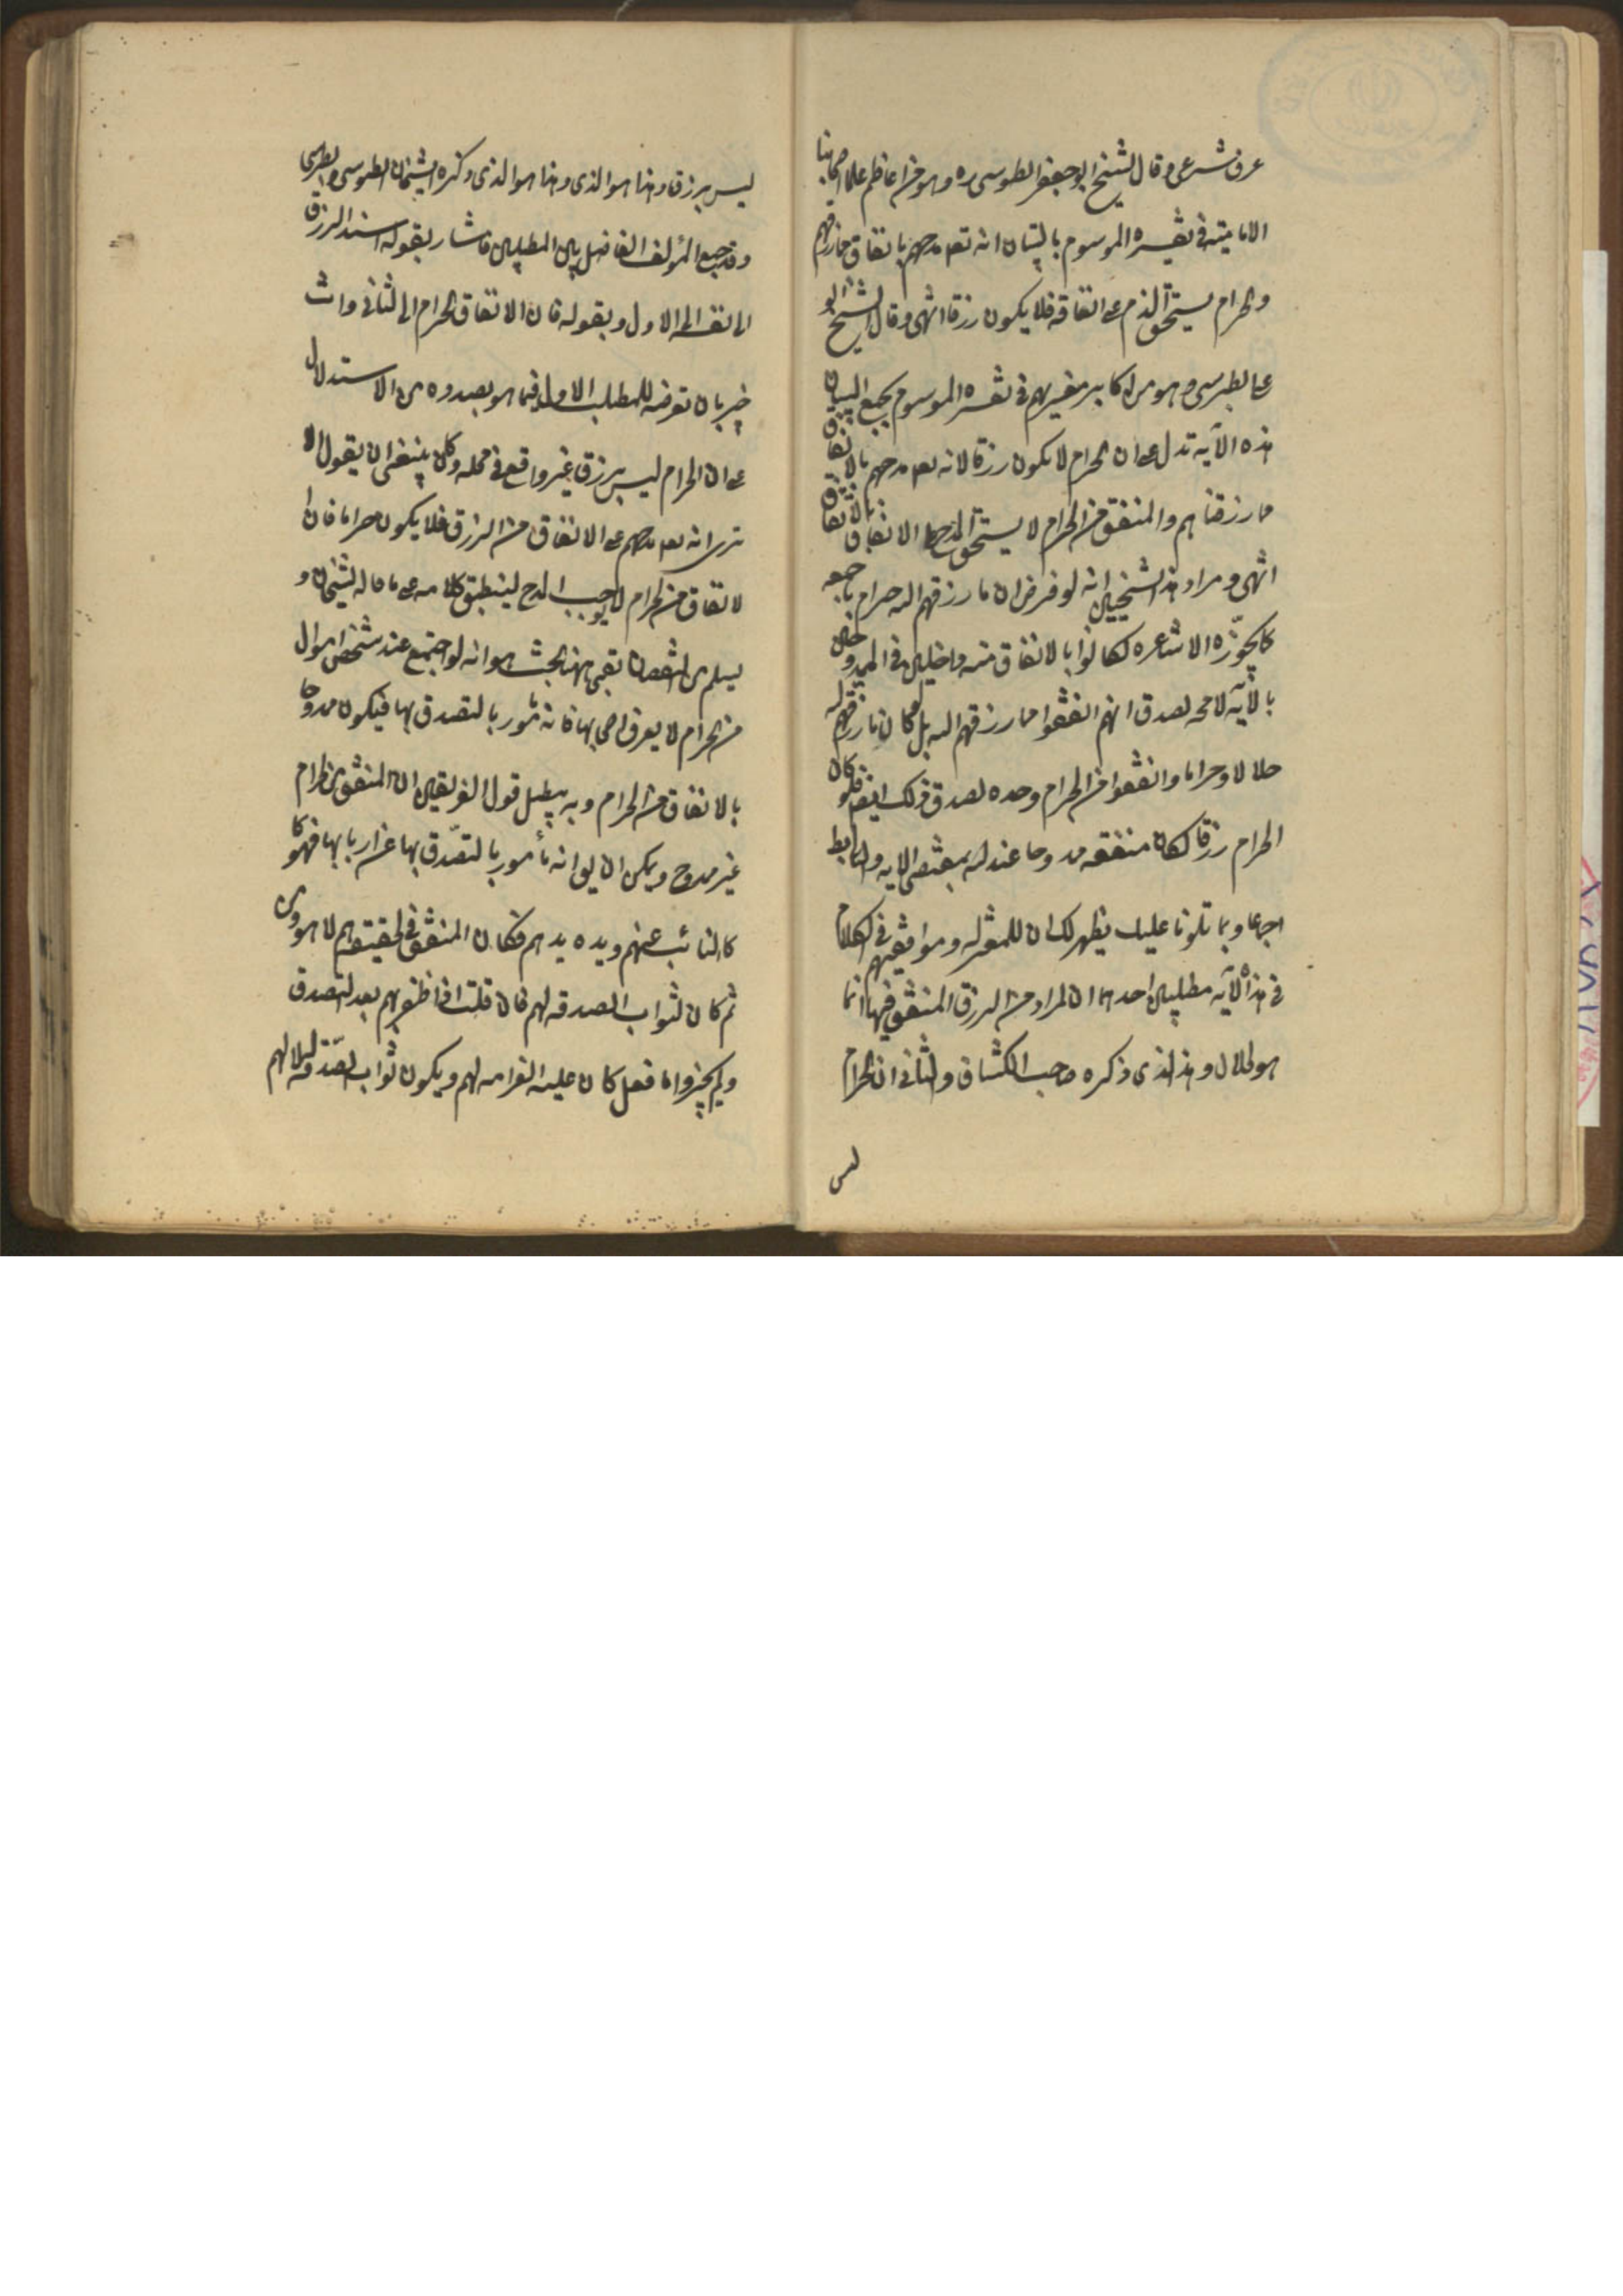 عرف شرعى وقال الشيخ ابو جعفر الطوسى ره وهو من اعاظم علماء اصحابنا
الامامية فى تفسيره الموسوم بالتبيان انه تعه مدحهم بانفاق مما رزقهم
والحرام يستحق الذم على انفاقه فلا يكون رزقا انتهى وقال الشيخ ابو
على الطبرسى وهو من اكابر مفسريهم فى تفسيره الموسوم بمجمع البيان
هذه الآية تدل على ان الحرام لا يكون رزقا لانه تعه مدحهم بالانفاق
مما رزقناهم والمنفق من الحرام لا يستحق المدح على الانفاق بالاتفاق
انتهى ومراد هذا الشيخين انه لو فرض ان ما رزقهم الله حرام باجمعه
كما يجوّزه الاشاعره لكانوا بالانفاق منه داخلين فى الممدوحين
بالآية لا محه لصدق انهم انفقوا مما رزقهم الله بل لو كان ما رزقهم الله
حلالا وحراما وانفقوا من الحرام وحده لصدق ذلك ايضا فلو كان
الحرام رزقا لكان منفقه ممدوحا عند الله بمقتضى الايه والتا بط
اجماعا وبما تلونا عليك يظهر لك ان للمعتزله وموافقيهم فى الكلام
فى هذه الآيه مطلبين احدهما ان المراد من الرزق المنفق فيها انما
هو الحلال وهذا الذى ذكره صاحب الكشاف والثانى ان الحرام
ليس
ليس برزق وهذا هو الذى وهذا هو الذى ذكره الشيخان الطوسى والطبرسى
وقد جمع المؤلف الفاضل بين المطلبين فاشار بقوله اسند الرزق
الى نفسه الى الاول وبقوله فان الانفاق الحرام الى الثانى وانت
خبير بان تعرضه للمطلب الاول فيما هو بصدده من الاستدلال
على ان الحرام ليس برزق غير واقع فى محله وكان ينبغى ان يقول الا
ترى انه تعه مدحهم على الانفاق من الرزق فلا يكون حراما فان ا
لانفاق من الحرام لا يوجب المدح لينطبق كلامه على ما قاله الشيخان و
يسلم من النقصان بقى ههنا بحث هو انه لو اجتمع عند شخص اموال
من الحرام لا يعرف اصحابها فانه مأمور بالتصدق بها فيكون ممدوحا
بالانفاق من الحرام وبه يبطل قول الفريقين ان المنفق من الحرام
غير ممدوح ويمكن ان يقال انه مأمور بالتصدّق بها عن اربابها فهو كا
كالنائب عنهم ويده يدهم فكان المنفق فى الحقيقه هم لا هو ومن
ثم كان ثواب الصدقه لهم فان قلت اذا ظفر بهم بعد التصدق
ولم يجيزوا ما فعل كان عليه الغرامه لهم ويكون ثواب الصّدقه له لا لهم